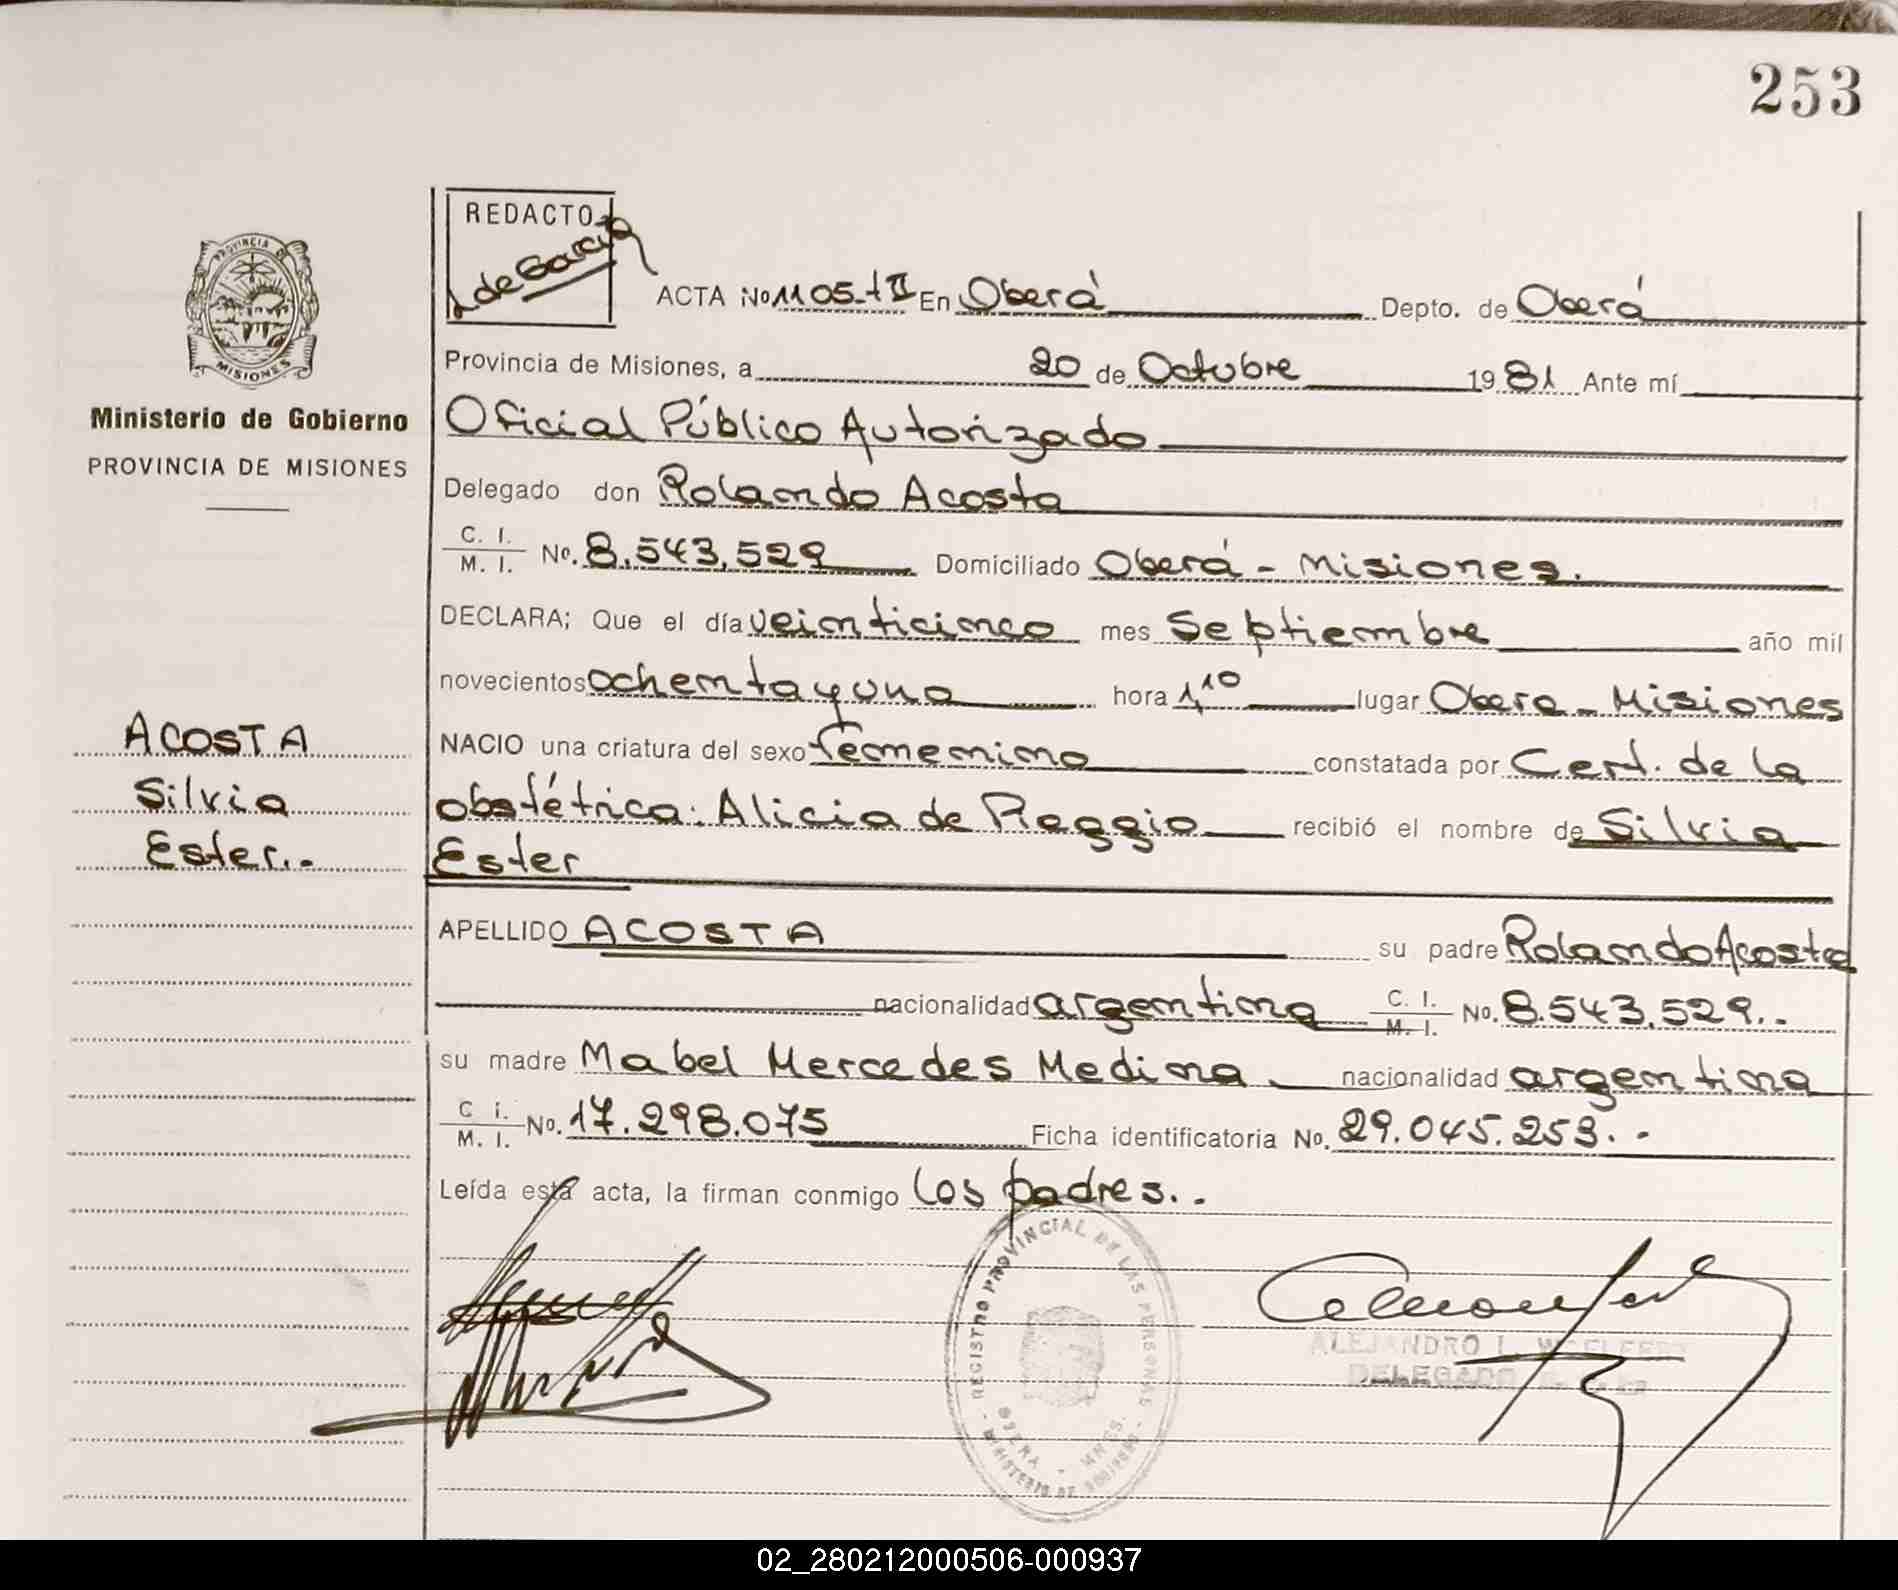 253
REDACTO
de Garcia
ACTA No 1105-tII En Oberá Depto. de Oberá
Provincia de Misiones, a 20 de Octubre 1981 Ante mí
Oficial Público Autorizado
Delegado don Rolando Acosta
C. I. / M. I. No. 8.543.529 Domiciliado Oberá - Misiones.
DECLARA; Que el día veinticinco mes Septiembre año mil
novecientos ochenta y uno hora 1,10 lugar Obera - Misiones
NACIO una criatura del sexo femenino constatada por Cert. de la
obstétrica: Alicia de Reggio recibió el nombre de Silvia
Ester
APELLIDO ACOSTA su padre Rolando Acosta
nacionalidad argentina C. I. / M. I. No. 8.543.529..
su madre Mabel Mercedes Medina nacionalidad argentina
C i. / M. I. No. 17.298.075 Ficha identificatoria No. 29.045.253..
Leída esta acta, la firman conmigo los padres..
PROVINCIA DE
MISIONES
Ministerio de Gobierno
PROVINCIA DE MISIONES
ACOSTA
Silvia
Ester..
REGISTRO PROVINCIAL DE LAS PERSONAS
OBERA - MNES.
MINISTERIO DE GOBIERNO
ALEJANDRO L.
DELEGADO
02_280212000506-000937